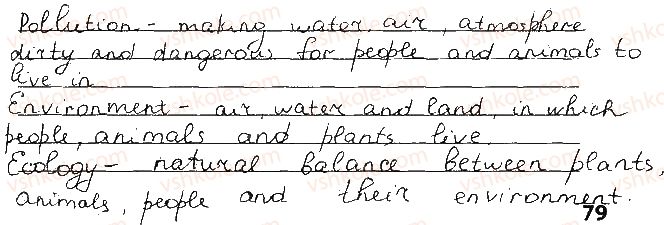 Pollution - making water, air, atmosphere
dirty and dangerous for people and animals to
live in
Environment - air, water and land, in which
people, animals and plants live.
Ecology - natural balance between plants,
animals, people and their environment.
79